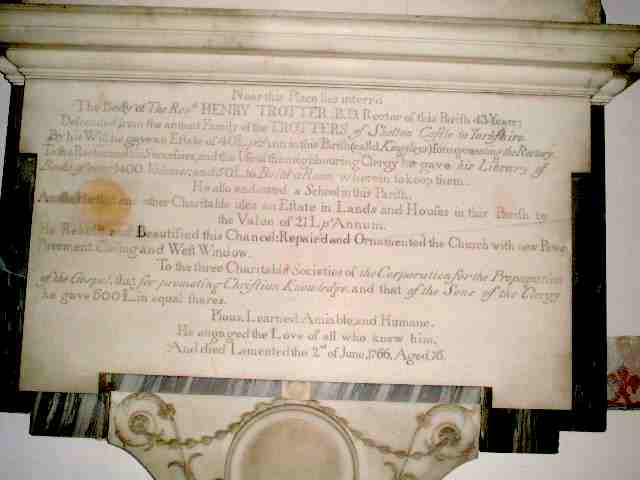 Near this Place lies interr'd
The Body of The Rev.d HENRY TROTTER, B.D. Rector of this Parish 43 Years;
Descended from the antient Family of the TROTTERS of Skelton Castle in Yorkshire.
By his Will he gave an Estate of 40L. p.r Ann. in this Parish (called Kingsleys) for augmenting the Rectory.
To the Rectors his Successors, and the Use of the neighbouring Clergy he gave his Library of
Books of 1400 Volumes; and 50L. to Build a Room wherein to keep them.
He also endowed a School in this Parish,
And other Charitable uses an Estate in Lands and Houses in this Parish to
the Value of 21L p.r Annum.
He and Beautified this Chancel: Repair'd and Ornamented the Church with new Pews,
Pavement, Ceiling and West Window.
To the three Charitable Societies of the Corporation for the Propagation
of the Gospel, that for promoting Christian Knowledge, and that of the Sons of the Clergy
he gave 500L. in equal shares.
Pious, Learned, Amiable, and Humane,
He engaged the Love of all who knew him,
And died Lamented the 2nd of June, 1766, Aged 76.